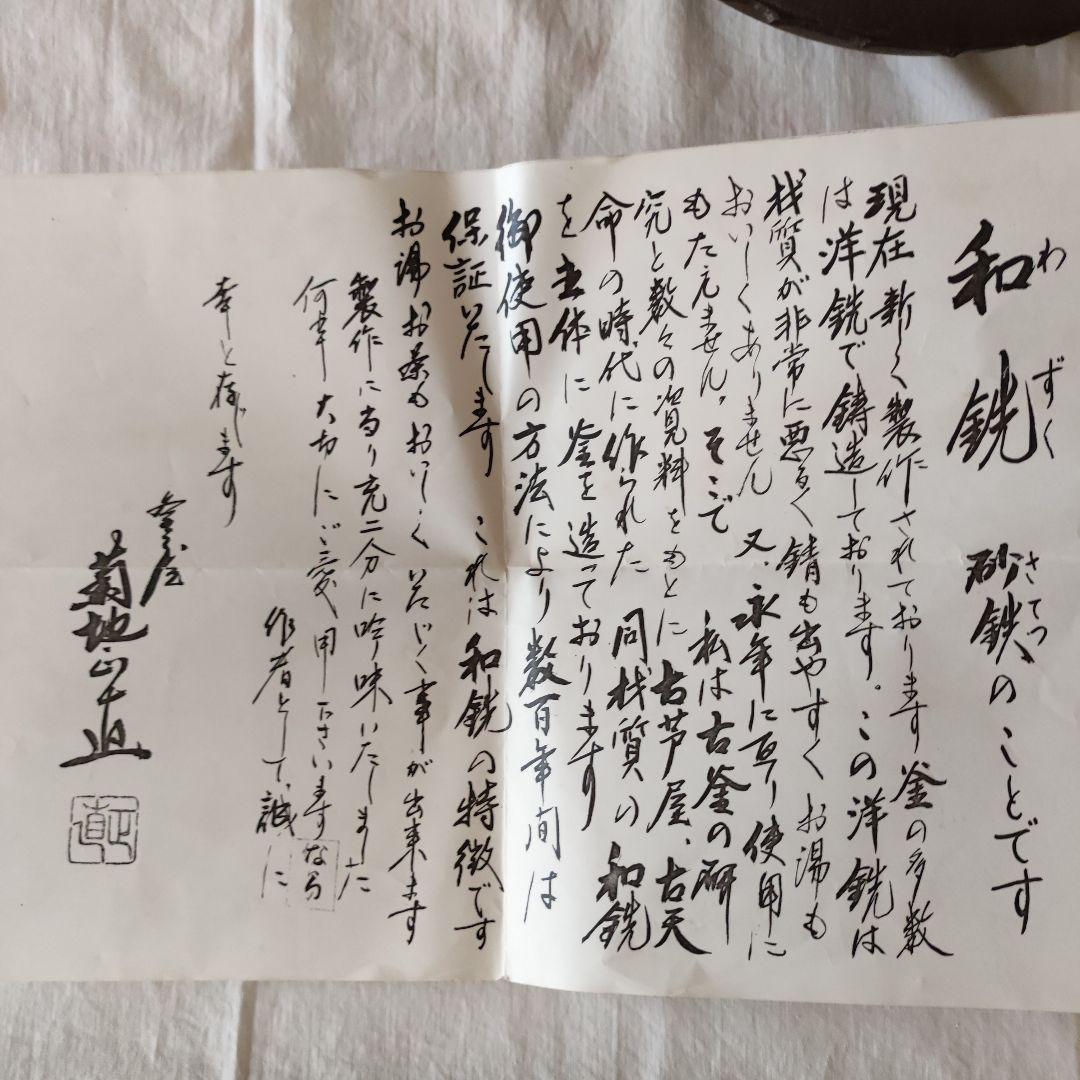 和銑 砂鉄のことです
わずく
さてつ
現在新く製作されております釜の多数
は洋銑で鋳造しております。この洋銑は
材質が非常に悪るく錆も出やすくお湯も
おいしくありません 又、永年に亘り使用に
もたえません。そこで 私は古釜の研
究と数々の資料をもとに古芦屋、古天
命の時代に作られた 同材質の和銑
を主体に釜を造っております
御使用の方法により数百年間は
保証いたします これは和銑の特徴です
お湯お茶もおいしくいただく事が出来ます
製作に当り充二分に吟味いたしました
何卒大切にご愛用下さいますなら
作者として、誠に
幸と存じます
釜屋
菊地正直
正直